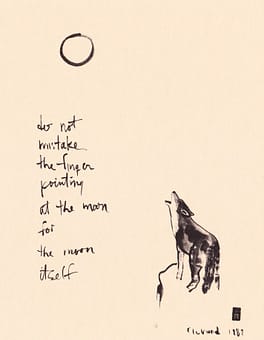 do not
mistake
the finger
pointing
at the moon
for
the moon
itself
richard 1987